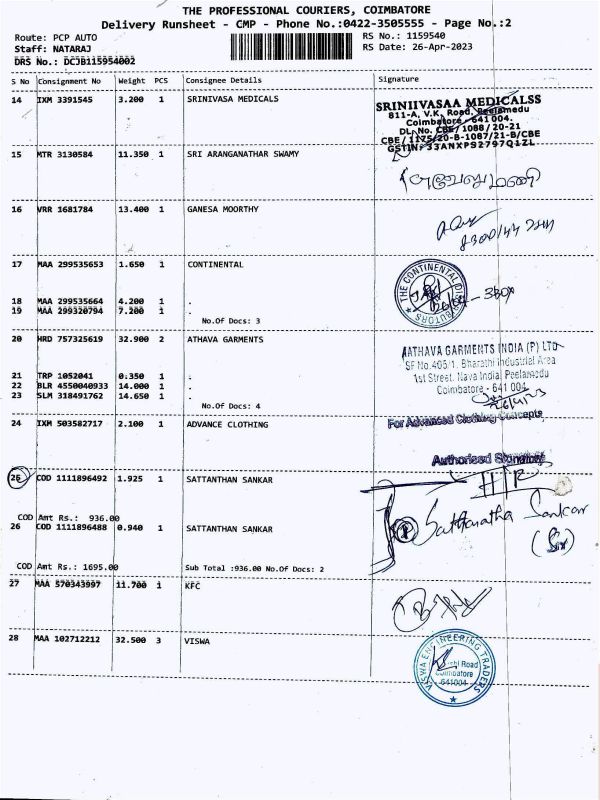 THE PROFESSIONAL COURIERS, COIMBATORE
Delivery Runsheet - CMP - Phone No.:0422-3505555 - Page No.:2
Route: PCP AUTO
RS No.: 1159540
Staff: NATARAJ
RS Date: 26-Apr-2023
DRS No.: DCJB115954002
S No Consignment No Weight PCS Consignee Details Signature
14 IXM 3391545 3.200 1 SRINIVASA MEDICALS
SRINIIVASAA MEDICALSS
811-A, V.K. Road, Peelamedu
Coimbatore - 641 004.
DL.No. CBE/1088/20-21
CBE/1175/20-B-1087/21-B/CBE
GSTIN: 33ANXPS2797Q1ZL
15 MTR 3130584 11.350 1 SRI ARANGANATHAR SWAMY
வேலுமணி
16 VRR 1681784 13.400 1 GANESA MOORTHY
17 MAA 299535653 1.650 1 CONTINENTAL
THE CONTINENTAL DISTRIBUTORS
18 MAA 299535664 4.200 1 .
19 MAA 299320794 7.200 1 .
No.Of Docs: 3
20 HRD 757325619 32.900 2 ATHAVA GARMENTS
AATHAVA GARMENTS INDIA (P) LTD
SF No.405/1, Bharathi Industrial Area
1st Street, Nava India, Peelamedu
Coimbatore - 641 004
21 TRP 1052041 0.350 1 .
22 BLR 4550040933 14.000 1 .
23 SLM 318491762 14.650 1 .
No.Of Docs: 4
24 IXM 503582717 2.100 1 ADVANCE CLOTHING
For Advanced Clothing Concepts
Authorised Signatory
25 COD 1111896492 1.925 1 SATTANTHAN SANKAR
COD Amt Rs.: 936.00
26 COD 1111896488 0.940 1 SATTANTHAN SANKAR
Sattanatha Sankar
(Sir)
COD Amt Rs.: 1695.00 Sub Total :936.00 No.Of Docs: 2
27 MAA 570343997 11.700 1 KFC
28 MAA 102712212 32.500 3 VISWA
VISWA ENGINEERING TRADERS
Road
Coimbatore
641004